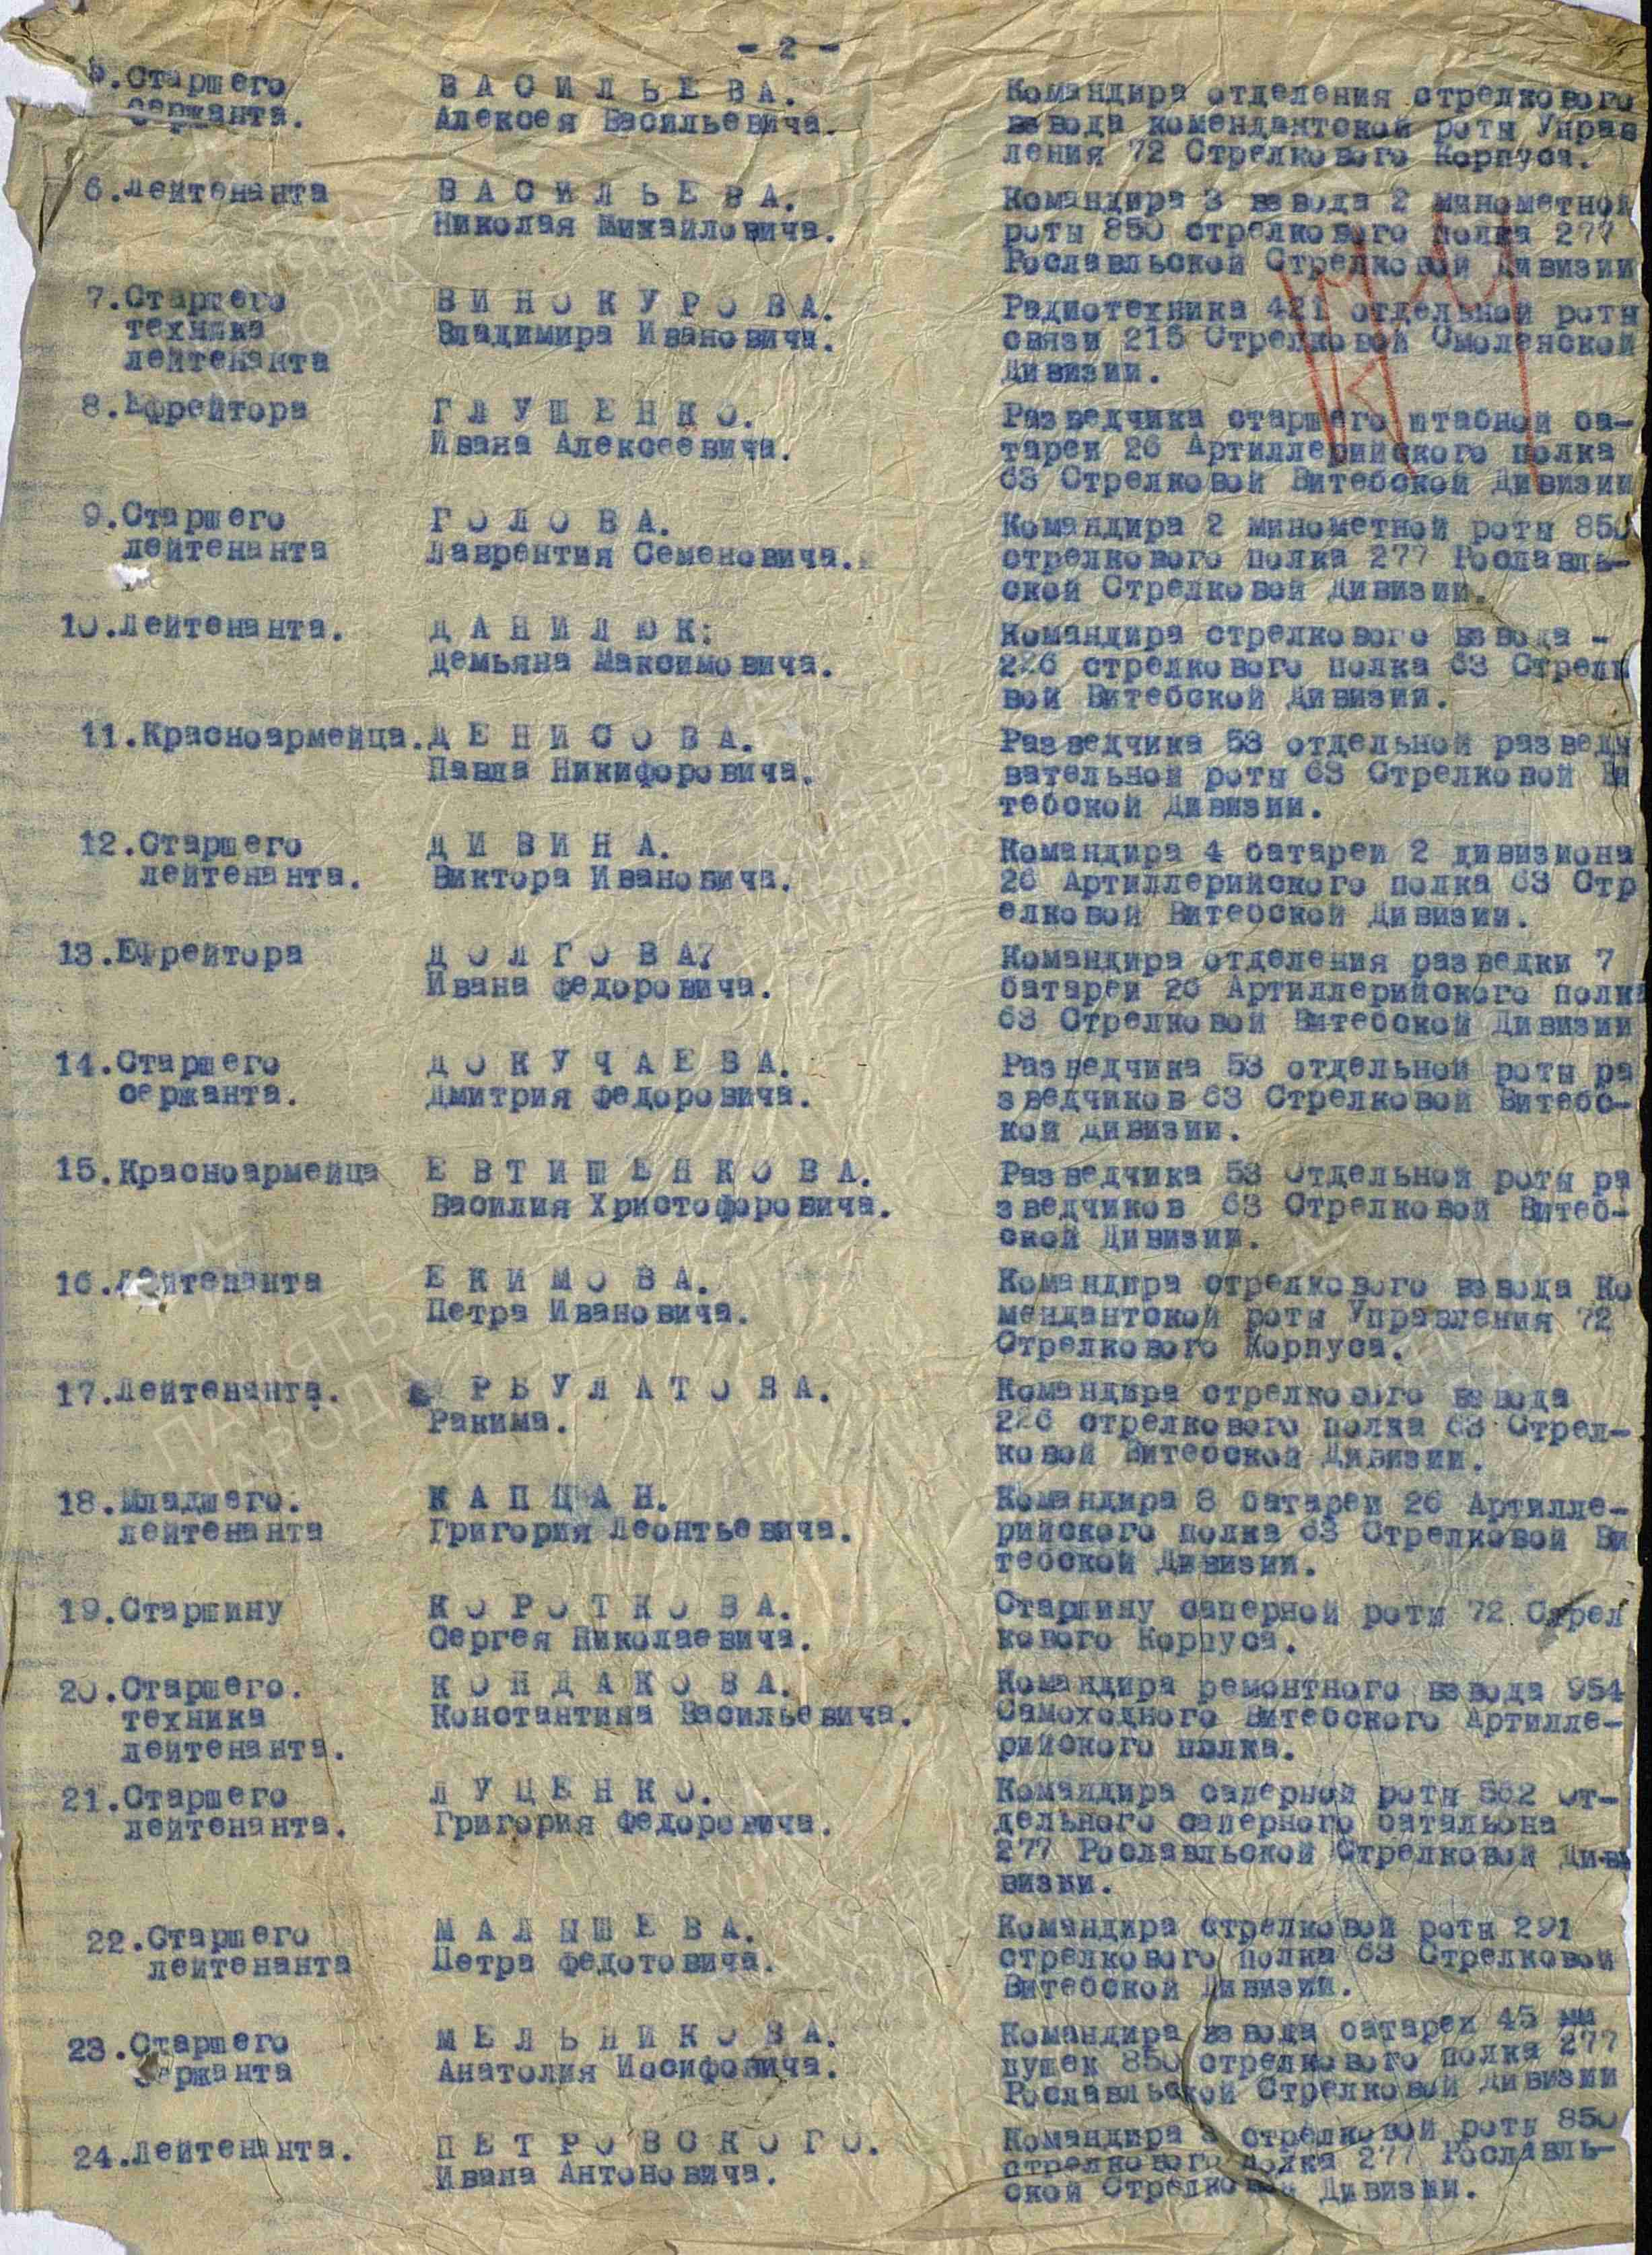 - 2 -
5.Старшего ВАСИЛЬЕВА. Командира отделения стрелкового
сержанта. Алексея Васильевича. взвода комендантской роты Управ
ления 72 Стрелкового Корпуса.
6.Лейтенанта ВАСИЛЬЕВА. Командира 3 взвода 2 минометной
Николая Михайловича. роты 850 стрелкового полка 277
Рославльской Стрелковой Дивизии
7.Старшего ВИНОКУРОВА. Радиотехника 421 отдельной роты
техника Владимира Ивановича. связи 215 Стрелковой Смоленской
лейтенанта Дивизии.
8.Ефрейтора ГЛУШЕНКО. Разведчика старшего штабной ба-
Ивана Алексеевича. тареи 26 Артиллерийского полка
63 Стрелковой Витебской Дивизии
9.Старшего ГОЛОВА. Командира 2 минометной роты 850
лейтенанта Лаврентия Семеновича. стрелкового полка 277 Рославль-
ской Стрелковой Дивизии.
10.Лейтенанта. ДАНИЛЮК: Командира стрелкового взвода -
Демьяна Максимовича. 226 стрелкового полка 63 Стрелк
вой Витебской Дивизии.
11.Красноармейца. ДЕНИСОВА. Разведчика 53 отдельной разведы
Павла Никифоровича. вательной роты 63 Стрелковой Ви
тебской Дивизии.
12.Старшего ДИВИНА. Командира 4 батареи 2 дивизиона
лейтенанта. Виктора Ивановича. 26 Артиллерийского полка 63 Стр
елковой Витебской Дивизии.
13.Ефрейтора ДОЛГОВА? Командира отделения разведки 7
Ивана Федоровича. батареи 26 Артиллерийского полка
63 Стрелковой Витебской Дивизии
14.Старшего ДОКУЧАЕВА. Разведчика 53 отдельной роты ра
сержанта. Дмитрия Федоровича. зведчиков 63 Стрелковой Витебс-
кой Дивизии.
15.Красноармейца ЕВТИШЕНКОВА. Разведчика 53 Отдельной роты ра
Василия Христофоровича. зведчиков 63 Стрелковой Витеб-
ской Дивизии.
16.Лейтенанта ЕКИМОВА. Командира стрелкового взвода Ко
Петра Ивановича. мендантской роты Управления 72
Стрелкового Корпуса.
17.Лейтенанта. РБУЛАТОВА. Командира стрелкового взвода
Ракима. 226 стрелкового полка 63 Стрел-
ковой Витебской Дивизии.
18.Младшего. КАПЦАН. Командира 8 батареи 26 Артилле-
лейтенанта Григория Леонтьевича. рийского полка 63 Стрелковой Ви
тебской Дивизии.
19.Старшину КОРОТКОВА. Старшину саперной роты 72 Стрел
Сергея Николаевича. кового Корпуса.
20.Старшего. КОНДАКОВА. Командира ремонтного взвода 954
техника Константина Васильевича. Самоходного Витебского Артилле-
лейтенанта. рийского полка.
21.Старшего ЛУЦЕНКО. Командира саперной роты 562 От-
лейтенанта. Григория Федоровича. дельного саперного батальона
277 Рославльской Стрелковой Ди-в
визии.
22.Старшего МАЛЫШЕВА. Командира стрелковой роты 291
лейтенанта Петра Федотовича. стрелкового полка 63 Стрелковой
Витебской Дивизии.
23.Старшего МЕЛЬНИКОВА. Командира взвода батареи 45 мм
сержанта Анатолия Иосифовича. пушек 850 стрелкового полка 277
Рославльской Стрелковой Дивизии
24.Лейтенанта. ПЕТРОВСКОГО. Командира 3 стрелковой роты 850
Ивана Антоновича. стрелкового полка 277 Рославль-
ской Стрелковой Дивизии.